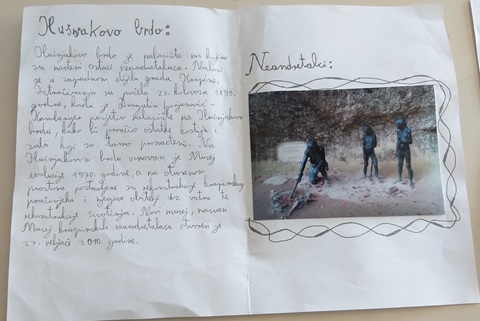 Hušnjakovo brdo:
Hušnjakovo brdo je nalazište na kojem
su nađeni ostaci neandertalaca. Nalazi
se u zapadnom dijelu grada Krapine.
Istraživanja su počela 23. kolovoza 1899.
godine, kada je Dragutin Gorjanović-
Kramberger posjetio nalazište na Hušnjakovu
brdu, kako bi proučio ostatke kostiju i
zubi koji su tamo pronađeni. Na
Hušnjakovom brdu osnovan je Muzej
evolucije 1970. godine, a na otvorenom
prostoru postavljene su rekonstrukcije krapinskog
pračovjeka i njegove obitelji uz vatru te
rekonstrukcije životinja. Novi muzej, nazvan
Muzej krapinskih neandertalaca otvoren je
27. veljače 2010. godine.
Neandertalci: